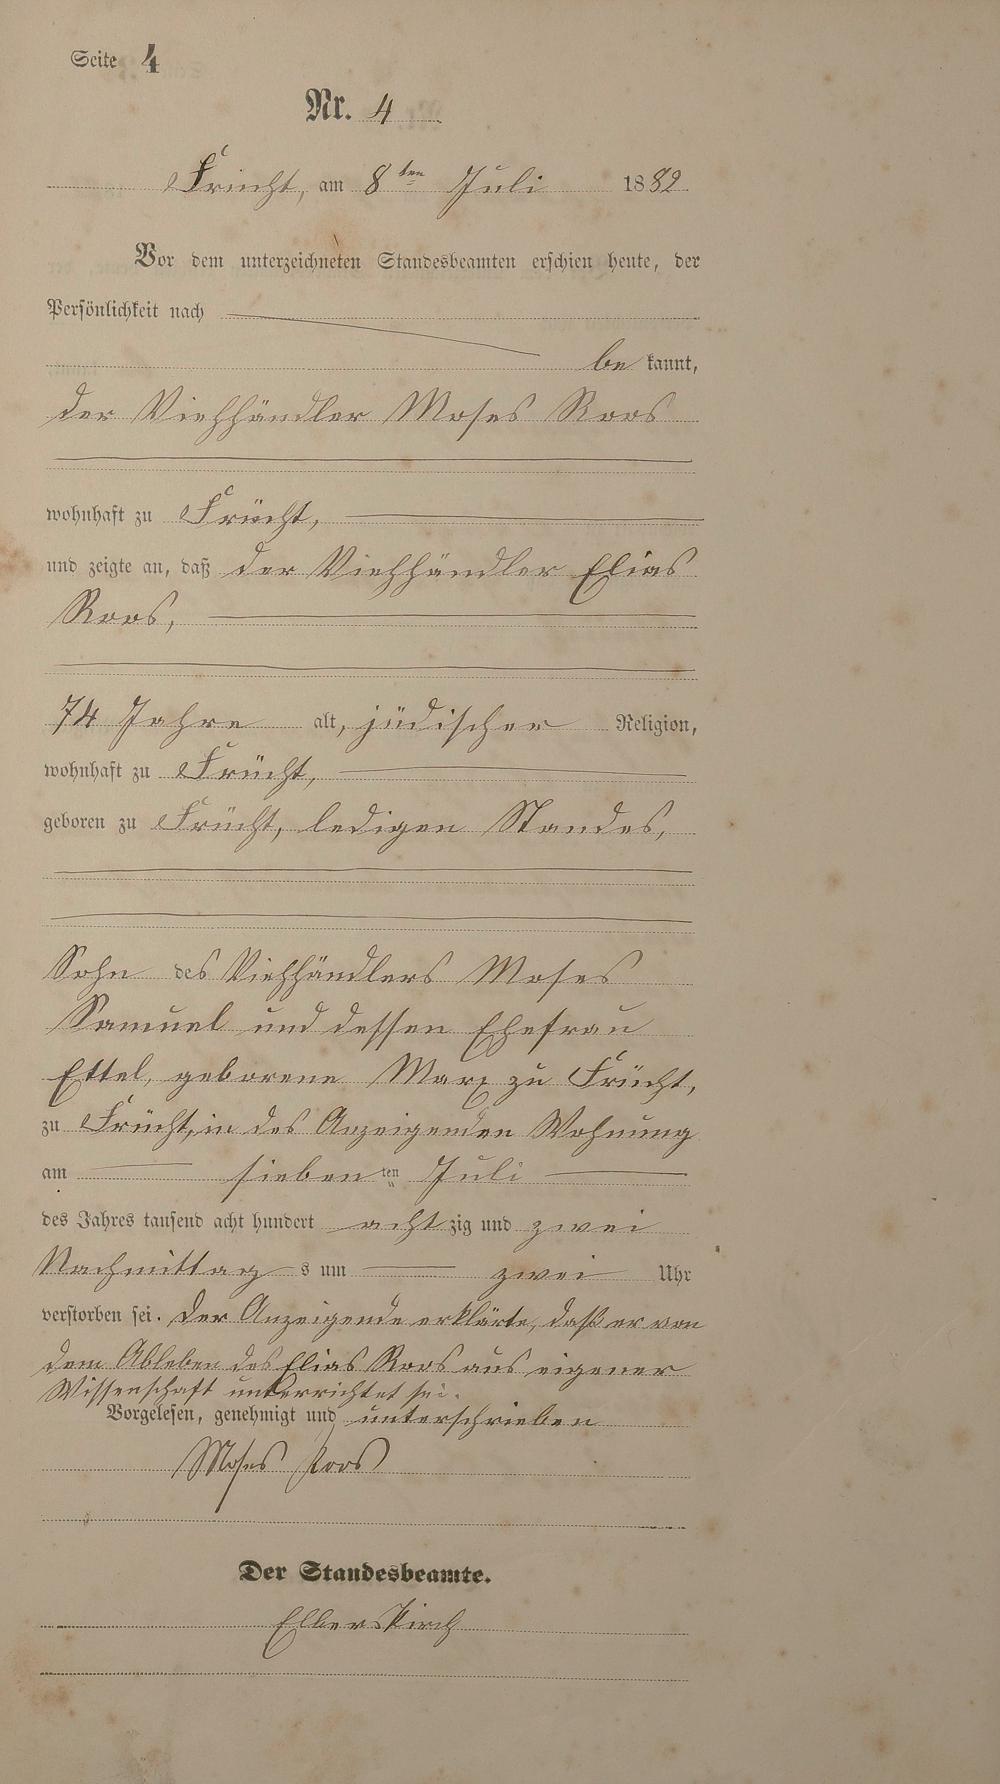 Seite 4
Nr. 4
Frücht, am 8ten Juli 1882
Vor dem unterzeichneten Standesbeamten erschien heute, der
Persönlichkeit nach
be kannt,
der Viehhändler Moses Roos
wohnhaft zu Frücht,
und zeigte an, daß der Viehhändler Elias
Roos,
74 Jahre alt, jüdischer Religion,
wohnhaft zu Frücht,
geboren zu Frücht, ledigen Standes,
Sohn des Viehhändlers Moses
Samuel und dessen Ehefrau
Ettel, geborene Marx zu Frücht,
zu Frücht, in des Anzeigenden Wohnung
am siebenten Juli
des Jahres tausend acht hundert achtzig und zwei
Nachmittags um zwei Uhr
verstorben sei. Der Anzeigende erklärte, daß er von
dem Ableben des Elias Roos aus eigener
Wissenschaft unterrichtet sei.
Vorgelesen, genehmigt und unterschrieben
Moses Roos
Der Standesbeamte.
Elberskirch